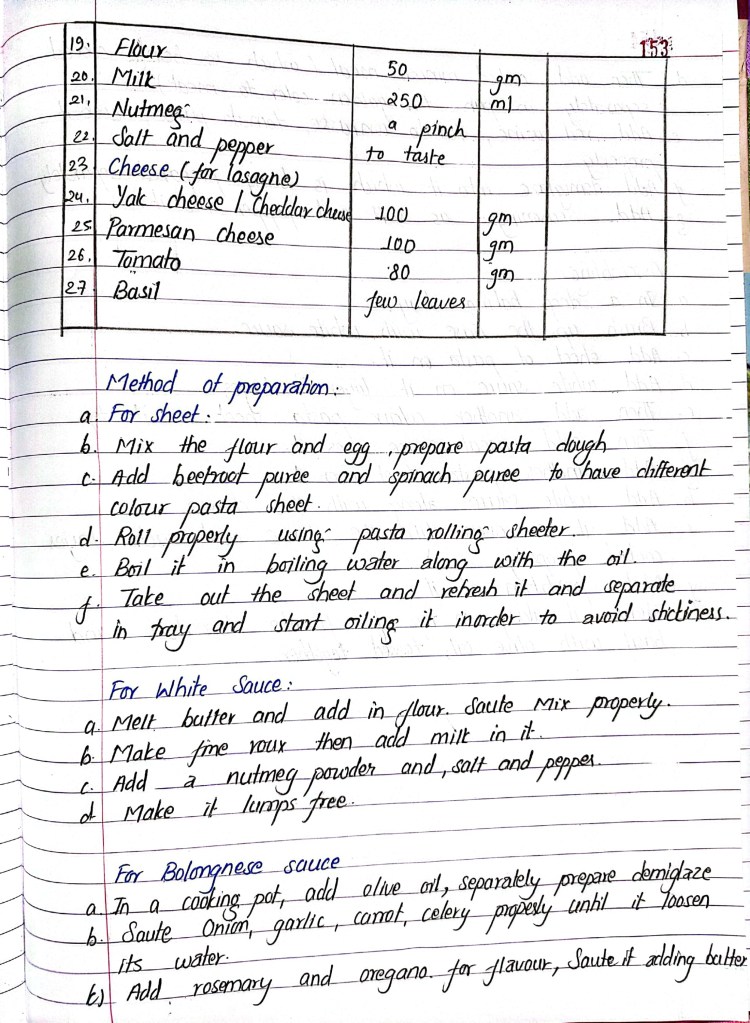 153
19. Flour 50 gm
20. Milk 250 ml
21. Nutmeg a pinch
22. Salt and pepper to taste
23 Cheese (for lasagne)
24. Yak cheese / Cheddar cheese 100 gm
25 Parmesan cheese 100 gm
26. Tomato 80 gm
27 Basil few leaves
Method of preparation:
a. For sheet:
b. Mix the flour and egg, prepare pasta dough
c. Add beetroot puree and spinach puree to have different
colour pasta sheet.
d. Roll properly using pasta rolling sheeter.
e. Boil it in boiling water along with the oil.
f. Take out the sheet and refresh it and separate
in tray and start oiling it inorder to avoid stickiness.
For White Sauce:
a. Melt butter and add in flour. Saute Mix properly.
b. Make fine roux then add milk in it.
c. Add a nutmeg powder and, salt and pepper.
d Make it lumps free.
For Bolongnese sauce
a. In a cooking pot, add olive oil, separately prepare demiglaze
b. Saute Onion, garlic, carrot, celery properly until it loosen
its water.
c) Add rosemary and oregano. for flavour, Saute it adding butter